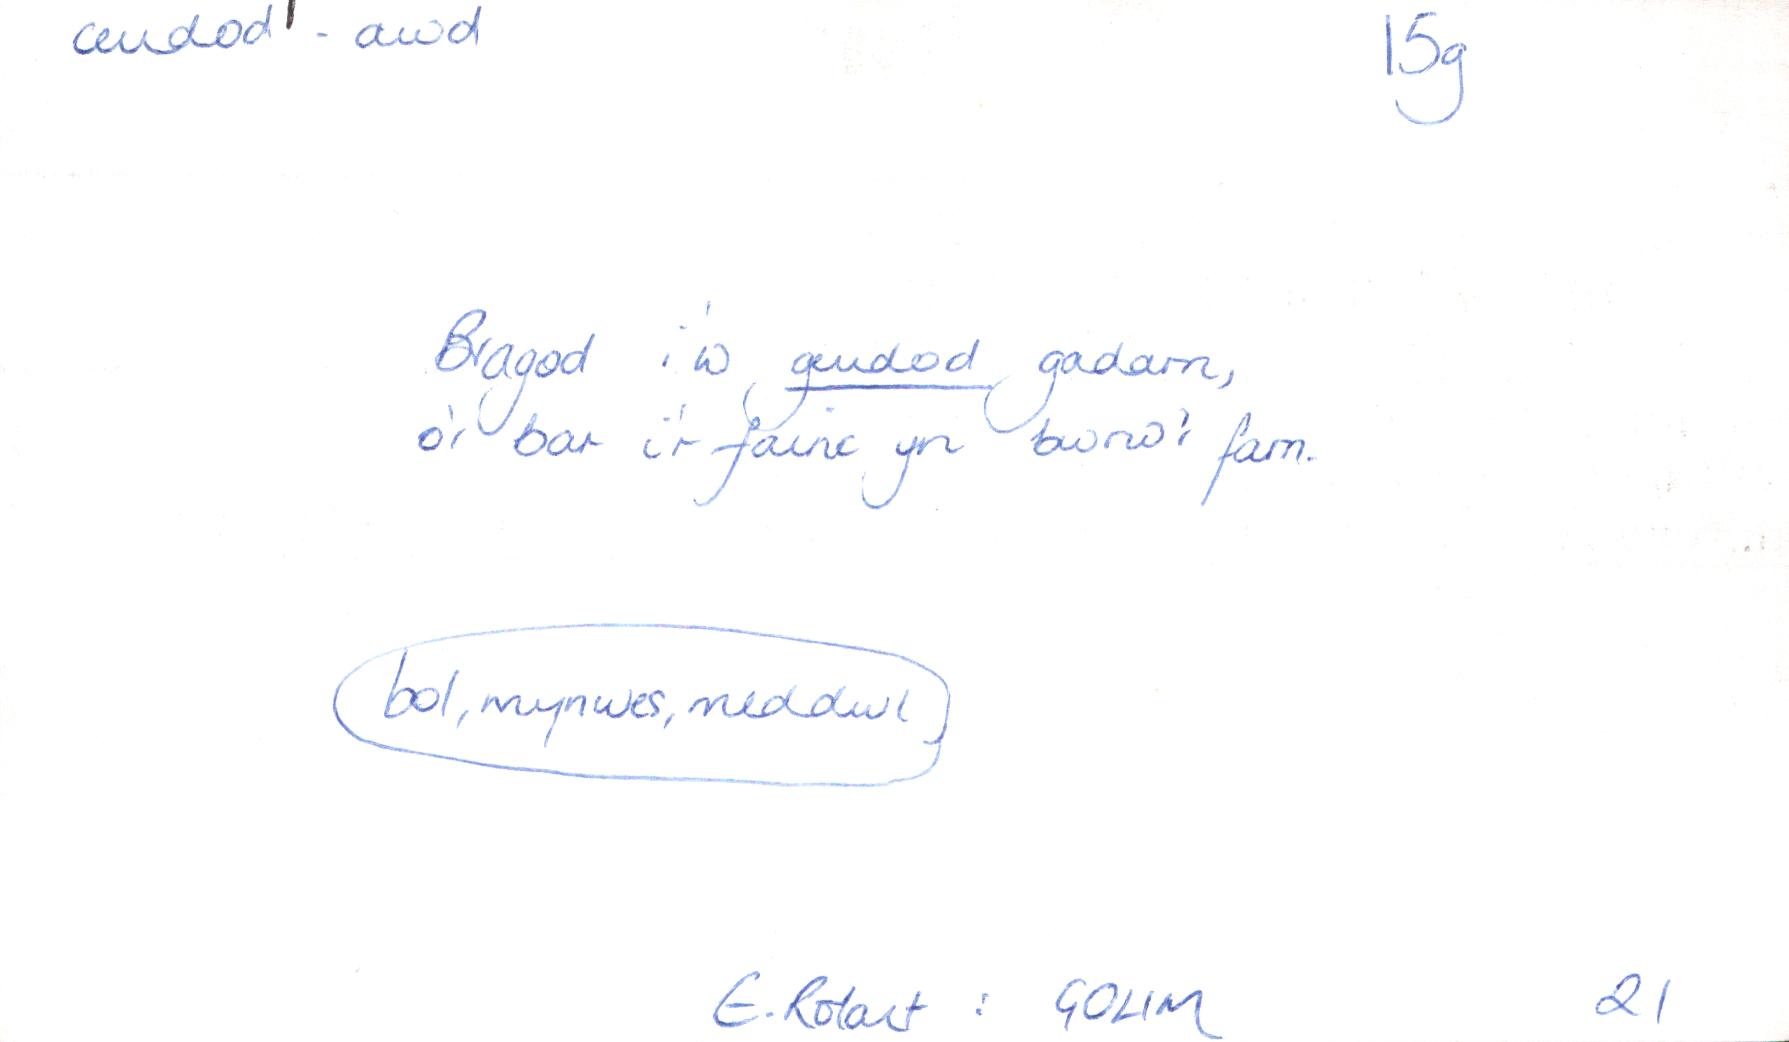 ceudod¹ - awd 15g
Bragod i'w geudod gadarn,
o'r bar i'r fainc yn bwrw'i farn.
bol, mynwes, meddwl
E. Rolant : GOLIM 21